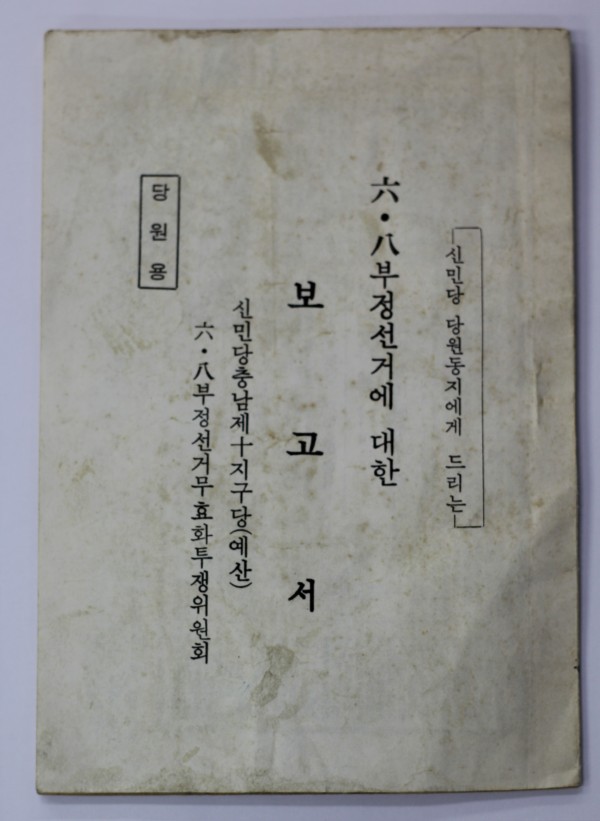 신민당 당원동지에게 드리는
六·八부정선거에 대한
보고서
신민당충남제十지구당(예산)
六·八부정선거무효화투쟁위원회
당원용